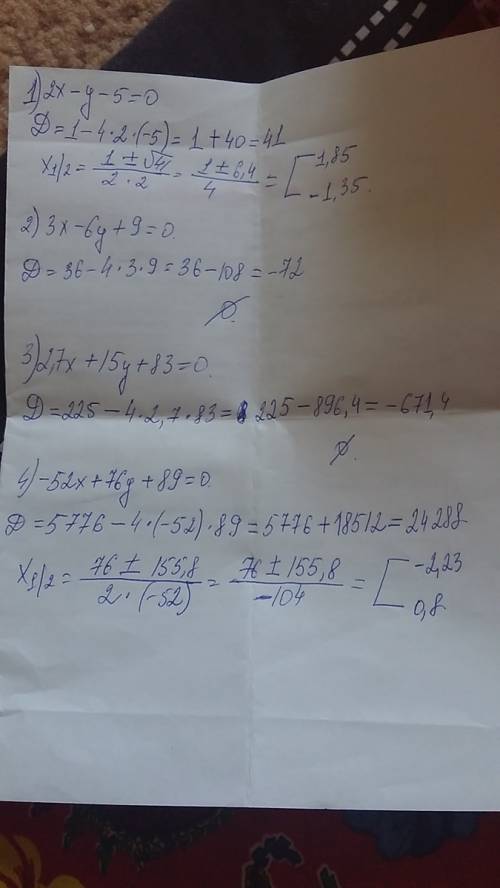 1) 2x - y - 5 = 0
D = 1 - 4·2·(-5) = 1 + 40 = 41
x1/2 = (1 ± √41)/(2·2) = (1 ± 6,4)/4 = [1,85 -1,35.
2) 3x - 6y + 9 = 0.
D = 36 - 4·3·9 = 36 - 108 = -72
∅.
3) 2,7x + 15y + 83 = 0.
D = 225 - 4·2,7·83 = 225 - 896,4 = -671,4
∅.
4) -52x + 76y + 89 = 0.
D = 5776 - 4·(-52)·89 = 5776 + 18512 = 24288
x1/2 = (76 ± 155,8)/(2·(-52)) = (76 ± 155,8)/(-104) = [-2,23 0,8